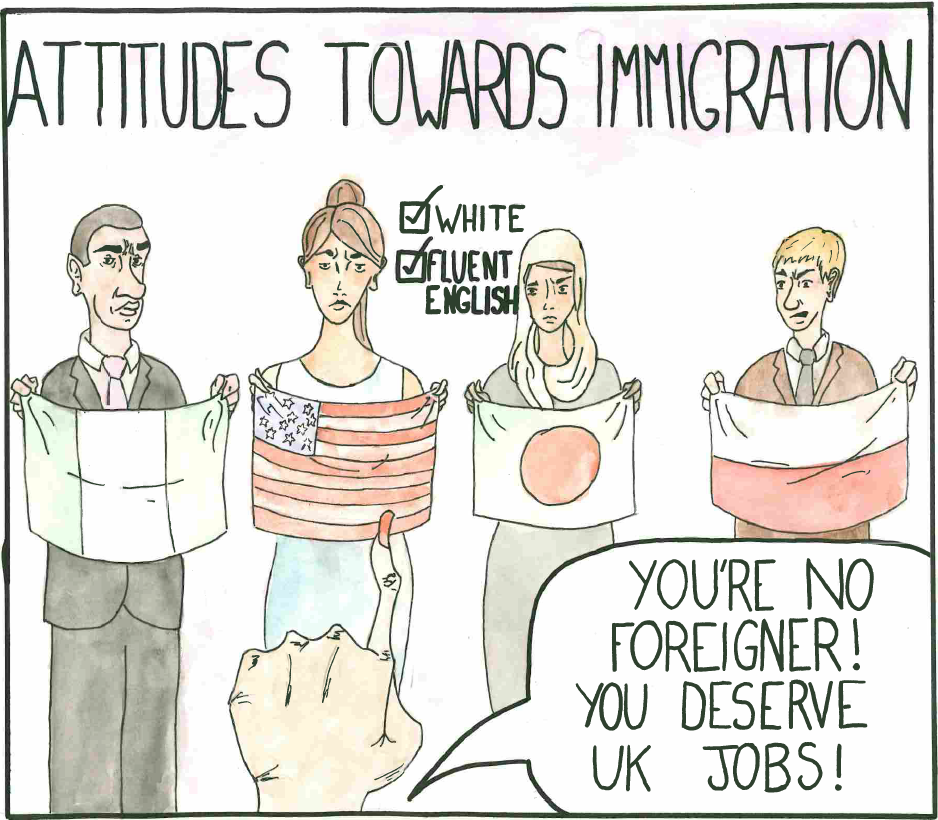 ATTITUDES TOWARDS IMMIGRATION
WHITE
FLUENT
ENGLISH
YOU'RE NO
FOREIGNER!
YOU DESERVE
UK JOBS!